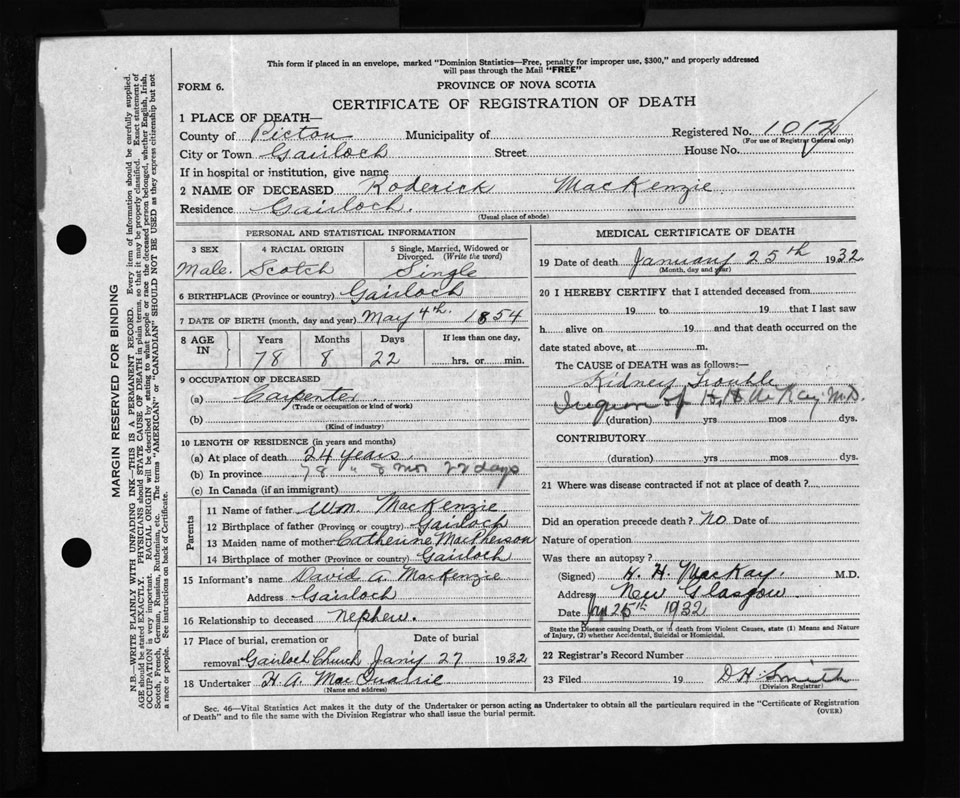 This form if placed in an envelope, marked "Dominion Statistics—Free, penalty for improper use, $300," and properly addressed
will pass through the Mail "FREE"
FORM 6.
PROVINCE OF NOVA SCOTIA
CERTIFICATE OF REGISTRATION OF DEATH
1 PLACE OF DEATH—
County of Pictou Municipality of Registered No. 1012
(For use of Registrar General only)
City or Town Gairloch Street House No.
If in hospital or institution, give name
2 NAME OF DECEASED Roderick MacKenzie
Residence Gairloch.
(Usual place of abode)
PERSONAL AND STATISTICAL INFORMATION
3 SEX 4 RACIAL ORIGIN 5 Single, Married, Widowed or
Divorced. (Write the word)
Male. Scotch Single
6 BIRTHPLACE (Province or country) Gairloch
7 DATE OF BIRTH (month, day and year) May 4th. 1854
8 AGE IN Years Months Days If less than one day,
78 8 22 hrs. or min.
9 OCCUPATION OF DECEASED
(a) Carpenter.
(Trade or occupation or kind of work)
(b)
(Kind of industry)
10 LENGTH OF RESIDENCE (in years and months)
(a) At place of death 24 years
(b) In province 78 " 8 mo 22 days
(c) In Canada (if an immigrant)
Parents
11 Name of father Wm. MacKenzie
12 Birthplace of father (Province or country) Gairloch
13 Maiden name of mother Catherine MacPherson
14 Birthplace of mother (Province or country) Gairloch
15 Informant's name David A. MacKenzie
Address Gairloch
16 Relationship to deceased nephew.
17 Place of burial, cremation or Date of burial
removal Gairloch Church Jan'y 27 1932
18 Undertaker H. A. MacQuarrie
(Name and address)
MEDICAL CERTIFICATE OF DEATH
19 Date of death January 25th 1932
(Month, day and year)
20 I HEREBY CERTIFY that I attended deceased from
19 to 19 : that I last saw
h alive on 19 and that death occurred on the
date stated above, at m.
The CAUSE OF DEATH was as follows:
Kidney Trouble
of H. H. McKay. M.D.
(duration) yrs mos dys.
CONTRIBUTORY
(duration) yrs mos dys.
21 Where was disease contracted if not at place of death?
Did an operation precede death? No Date of
Nature of operation
Was there an autopsy?
(Signed) H. H. MacKay M.D.
Address New Glasgow
Date 1932
State the Disease causing Death, or in death from Violent Causes, state (1) Means and Nature
of Injury, (2) whether Accidental, Suicidal or Homicidal.
22 Registrar's Record Number
23 Filed 19 D H. Smith
(Division Registrar)
Sec. 46—Vital Statistics Act makes it the duty of the Undertaker or person acting as Undertaker to obtain all the particulars required in the "Certificate of Registration
of Death" and to file the same with the Division Registrar who shall issue the burial permit.
(OVER)
MARGIN RESERVED FOR BINDING
N.B.—WRITE PLAINLY WITH UNFADING INK—THIS IS A PERMANENT RECORD. Every item of information should be carefully supplied.
AGE should be stated EXACTLY. PHYSICIANS should STATE CAUSE OF DEATH in plain terms, so that it may be properly classified. Exact statement of
OCCUPATION is very important. RACIAL ORIGIN will be described by stating to what people or race the deceased person belonged, whether English, Irish,
Scotch, French, German, Russian, Ruthenian, etc. The terms "AMERICAN" or "CANADIAN" SHOULD NOT BE USED as they express citizenship but not
a race or people. See instructions on back of Certificate.